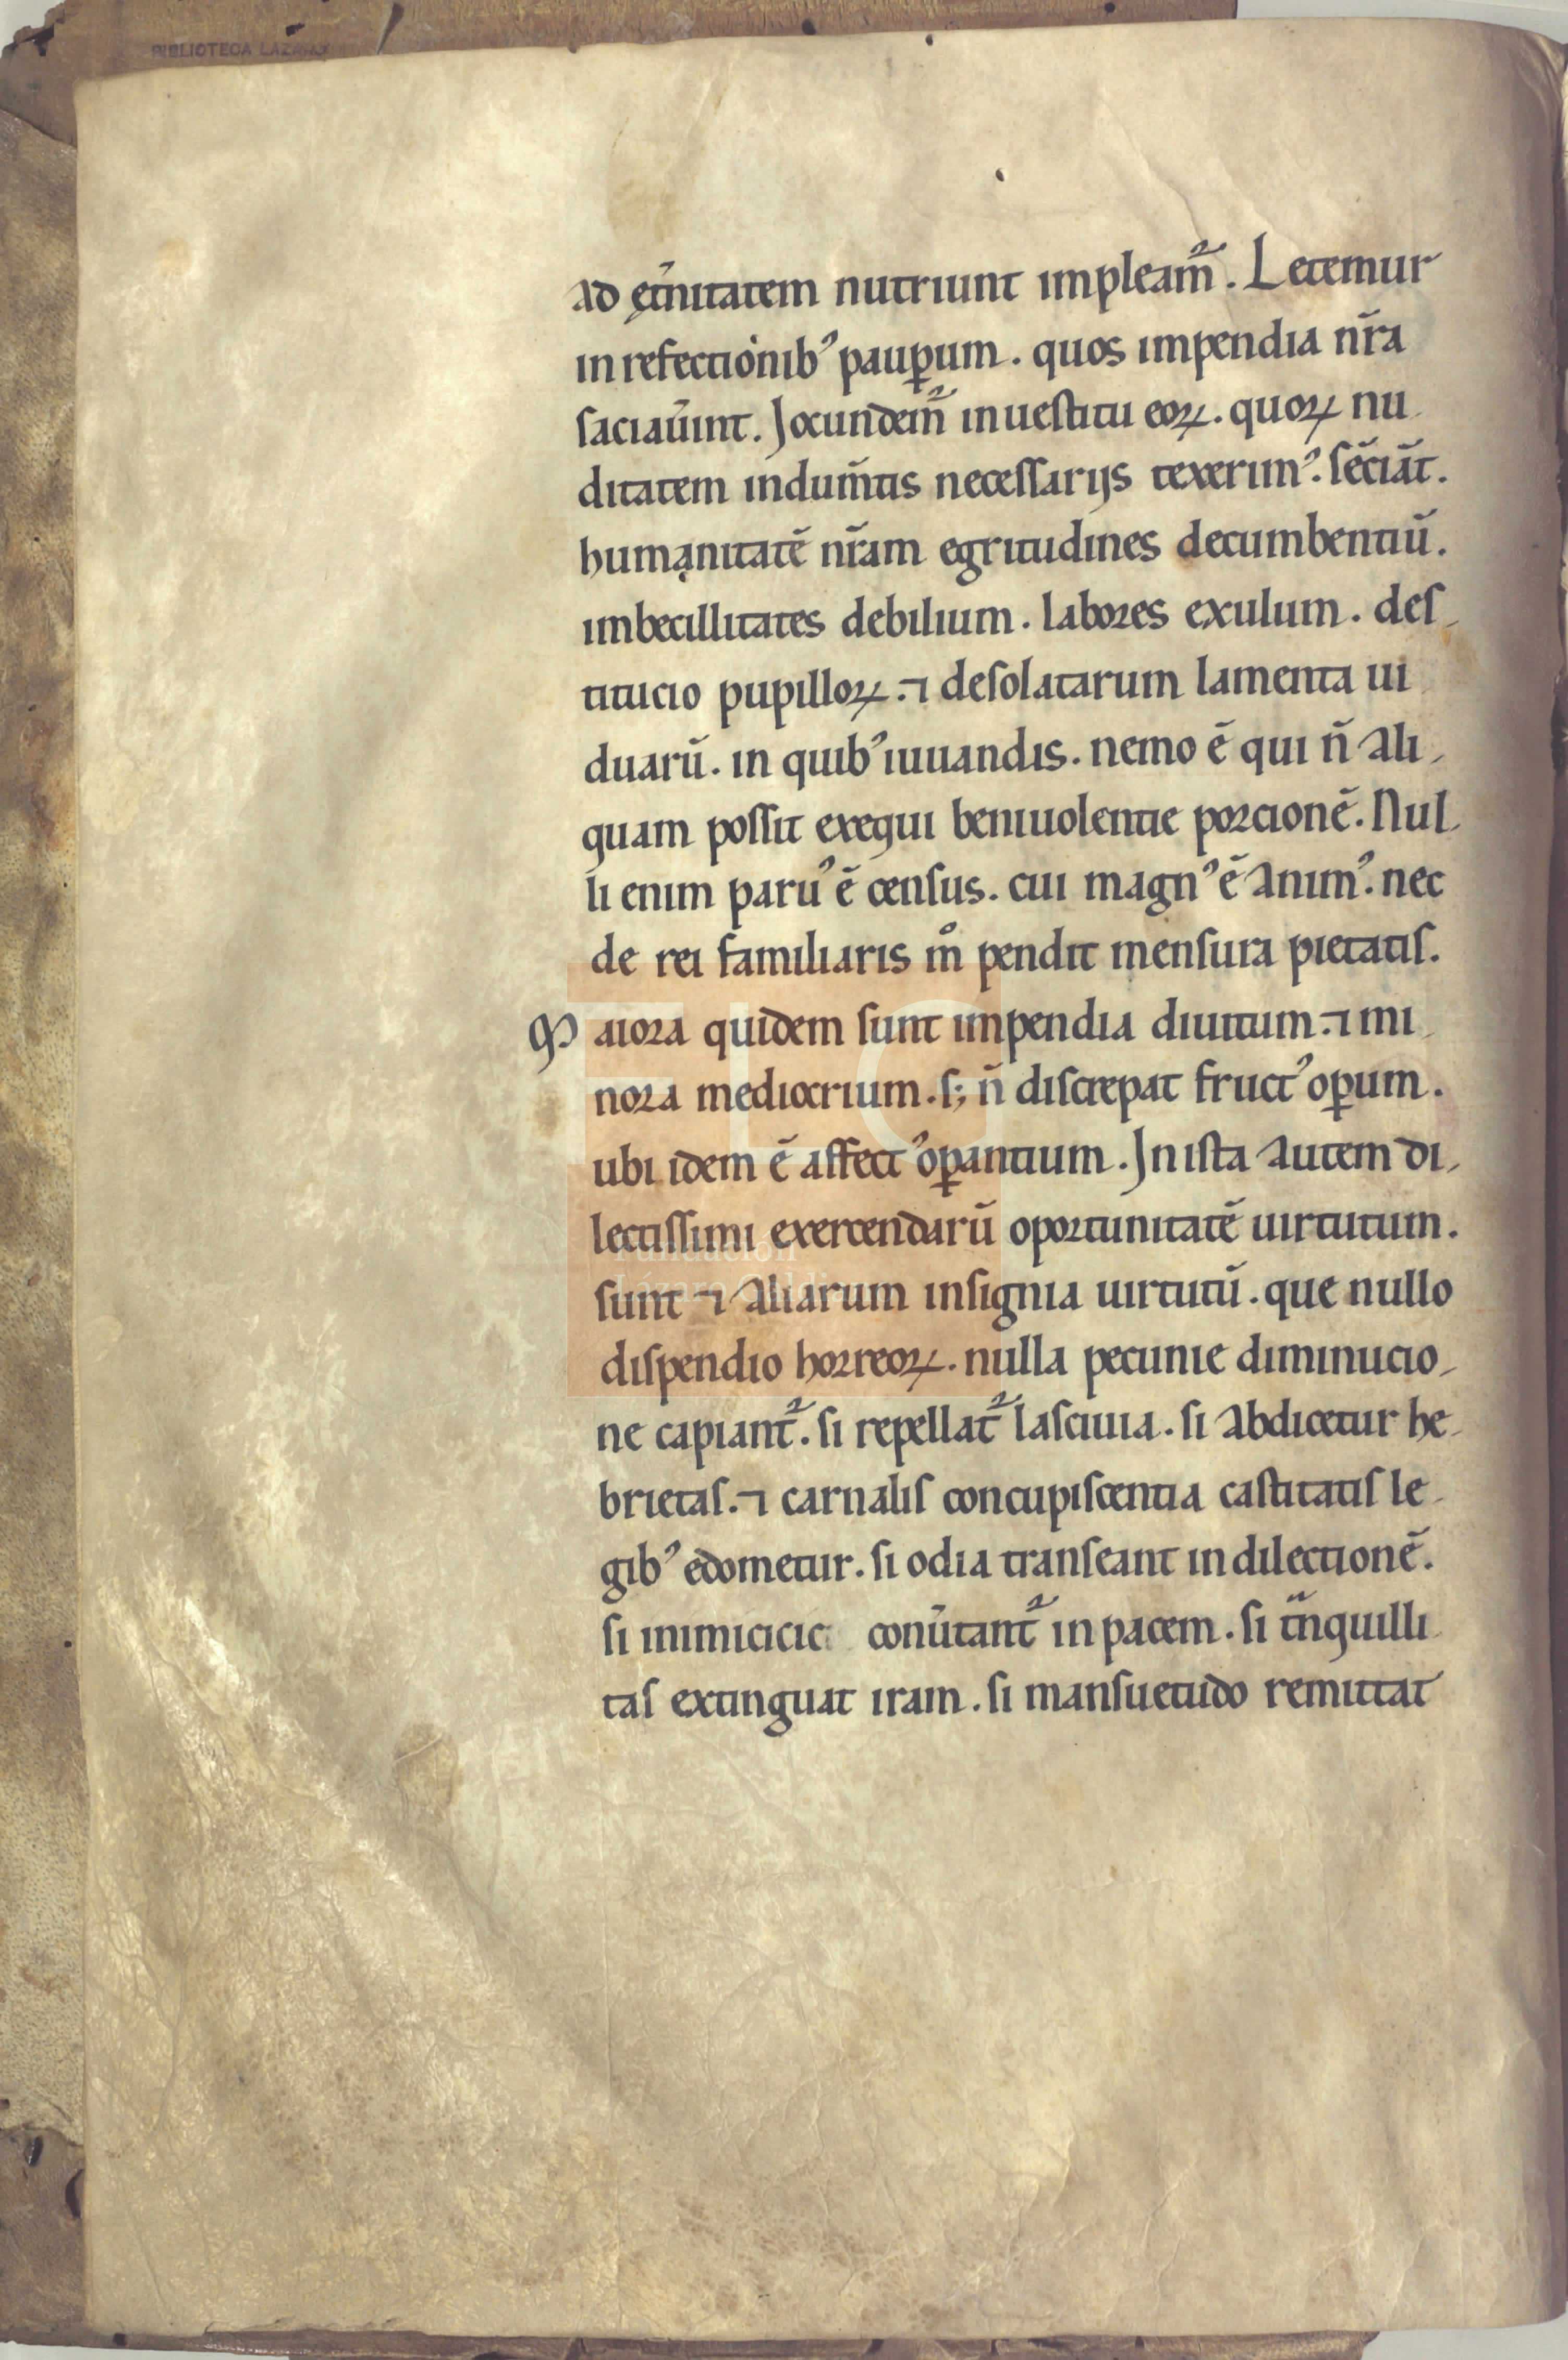 BIBLIOTECA LAZARO
ad ęt̄nitatem nutriunt impleam̄᷑. Letemur
in refectionib᾽ paup̱um. quos impendia nr̄a
saciau̅int. Jocundem̄᷑ in uestitu eoꝝ. quoꝝ nu
ditatem indum̄tis necessarijs texerim᾽. sēciāt.
humanitatē nr̄am egritudines decumbentiū.
imbecillitates debilium. labores exulum. des
titucio pupilloꝝ. ⁊ desolatarum lamenta ui
duarū. in quib᾽ iuuandis. nemo ē qui n̄ ali
quam possit exequi beniuolentie porcionē. Nul
li enim paru᾽ ē census. cui magn᾽ ē anim᾽. nec
de rei familiaris m̊ pendit mensura pietatis.
Maiora quidem sunt impendia diuitum. ⁊ mi
nora mediocrium. s; n̄ discrepat fruct᾽ oꝑum.
ubi idem ē affect᾽ oꝑantium. In ista autem di
lectissimi exercendarū oportunitatē uirtutum.
sunt ⁊ aliarum insignia uirtutū. que nullo
dispendio horreoꝝ. nulla pecunie diminucio
ne capiant᷑. si repellat᷑ lasciuia. si abdicetur he
brietas. ⁊ carnalis concupiscentia castitatis le
gib᾽ edometur. si odia transeant in dilectionē.
si inimicicie conu̅tant᷑ in pacem. si tᷓnquilli
tas extinguat iram. si mansuetudo remittat